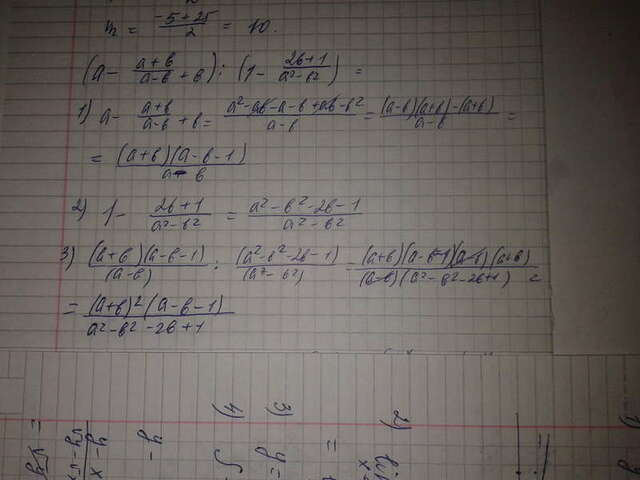 n = (-5+25)/2 = 10.
(a - (a+b)/(a-b) + b) : (1 - (2b+1)/(a²-b²)) =
1) a - (a+b)/(a-b) + b = (a²-ab-a-b+ab-b²)/(a-b) = ((a-b)(a+b)-(a+b))/(a-b) =
= ((a+b)(a-b-1))/(a-b)
2) 1 - (2b+1)/(a²-b²) = (a²-b²-2b-1)/(a²-b²)
3) ((a+b)(a-b-1))/(a-b) : (a²-b²-2b-1)/(a²-b²) = ((a+b)(a-b-1)(a-b)(a+b))/((a-b)(a²-b²-2b+1)) =
= ((a+b)²(a-b-1))/(a²-b²-2b+1)
2)
3) y =
4)
y -